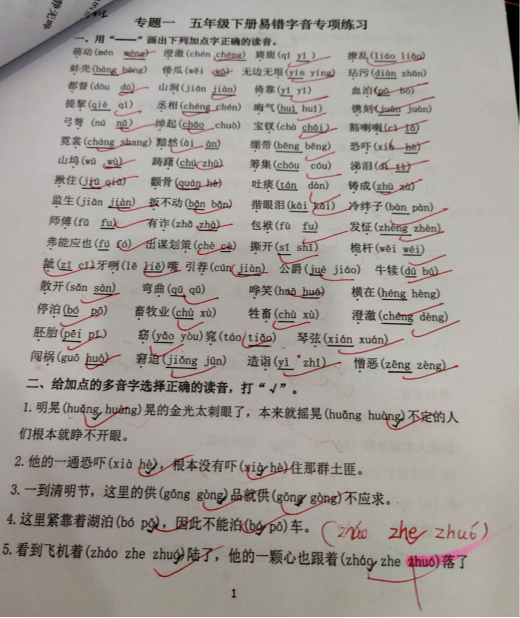 专题一 五年级下册易错字音专项练习
一、用"——"画出下列加点字正确的读音。
萌动(mén méng) 澄澈(chén chéng) 旖旎(qí yǐ) 撩乱(liáo liāo)
蚌壳(bàng bèng) 倭瓜(wēi wō) 无边无垠(yín yíng) 玷污(diàn zhān)
都督(dōu dū) 山涧(jiān jiàn) 倚靠(yǐ yī) 血泊(pō bó)
提掣(qiè qì) 丞相(chéng chén) 晦气(huì huǐ) 镌刻(juān juàn)
弓弩(nú nǔ) 绰起(chāo chuò) 宝钗(chā chāi) 豁喇喇(cì lā)
霓裳(cháng shang) 黯然(ài àn) 绷带(bēng běng) 恐吓(xià hè)
山坞(wū wù) 踌躇(chú zhù) 筹集(chóu cóu) 涕泪(dì tì)
揪住(jiū qiū) 颧骨(quán hè) 吐痰(tán dàn) 铸成(zhù zù)
监生(jiān jiàn) 扳不动(bān bǎn) 揩眼泪(kāi kǎi) 冷绊子(bàn pàn)
师傅(fù fu) 有诈(zhā zhà) 包袱(fú fu) 发怔(zhèng zhēn)
弗能应也(fú fó) 出谋划策(chè cè) 撕开(sī shī) 桅杆(wéi wēi)
龇(zī cī)牙咧(lě liě)嘴 引荐(cún jiàn) 公爵(jué jiáo) 牛犊(dú bú)
散开(sǎn sàn) 弯曲(qū qǔ) 哗笑(huā huá) 横在(héng hèng)
停泊(bó pō) 畜牧业(chù xù) 牲畜(chù xù) 澄澈(chéng dèng)
胚胎(pēi pī) 窈(yǎo yòu)窕(táo tiǎo) 琴弦(xián xuán)
闯祸(guō huò) 窘迫(jiǒng jūn) 造诣(yì zhǐ) 憎恶(zēng zèng)
二、给加点的多音字选择正确的读音，打"√"。
1.明晃(huǎng huàng)晃的金光太刺眼了，本来就摇晃(huǎng huàng)不定的人
们根本就睁不开眼。
2.他的一通恐吓(xià hè)，根本没有吓(xià hè)住那群土匪。
3.一到清明节，这里的供(gōng gòng)品就供(gōng gòng)不应求。
4.这里紧靠着湖泊(bó pō)，因此不能泊(bó pō)车。(zháo zhe zhuó)
5.看到飞机着(zháo zhe zhuó)陆了，他的一颗心也跟着(zháo zhe zhuó)落了
1